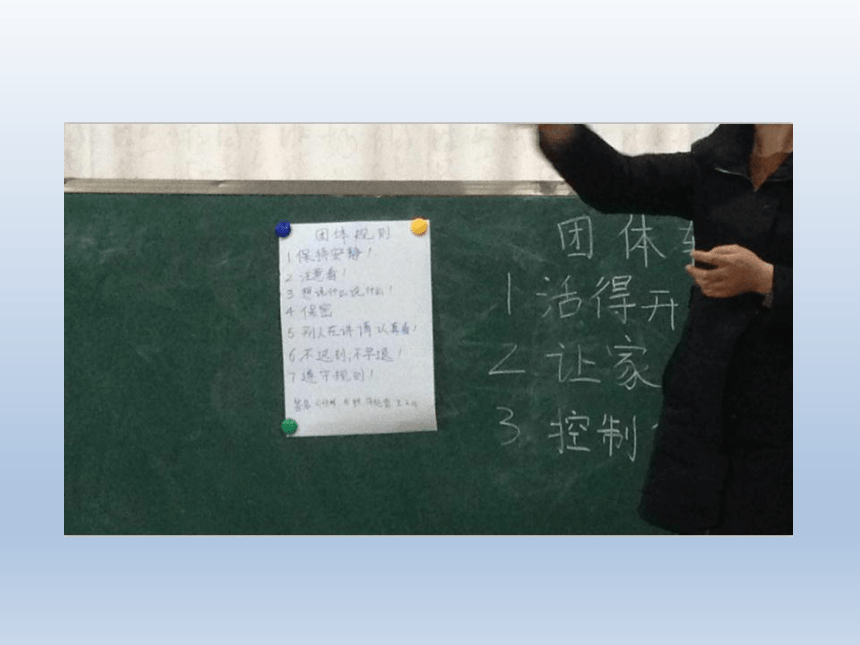 团体规则
1 保持安静！
2 注意看！
3 想说什么说什么！
4 保密
5 别人在讲请认真看！
6 不迟到,不早退！
7 遵守规则！
团体
1 活得开
2 让家
3 控制